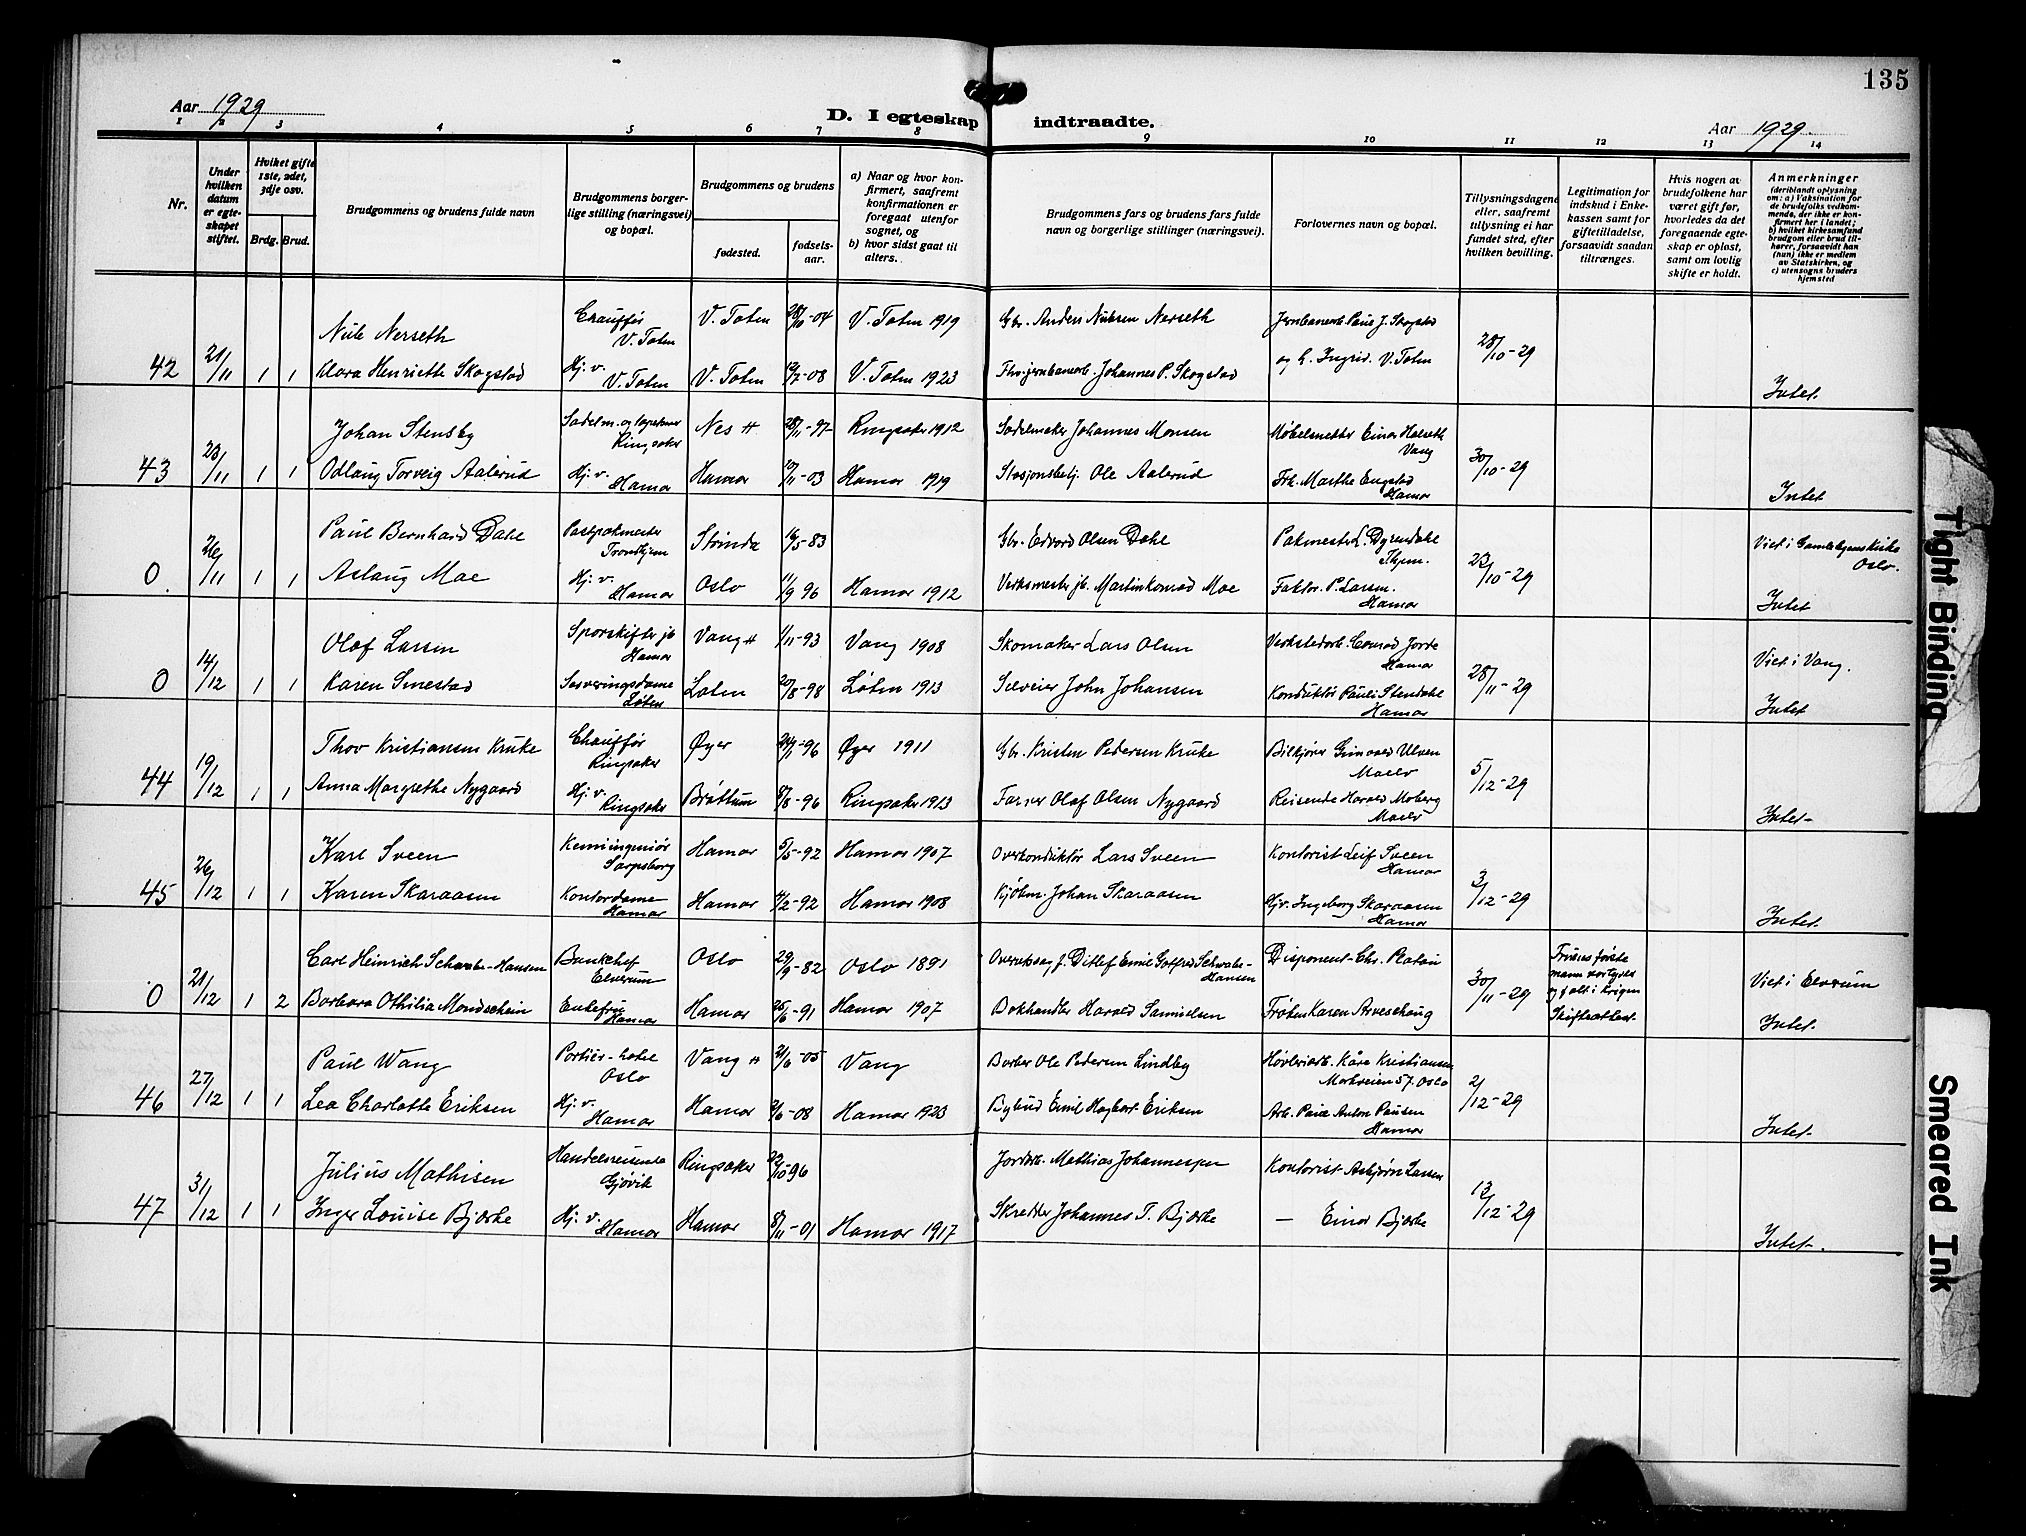 135
Aar 1929
D. I egteskap indtraadte.
Aar 1929.
1 2 3 4 5 6 7 8 9 10 11 12 13 14
Nr.
Under hvilken datum er egteskapet stiftet.
Hvilket gifte 1ste, 2det, 3dje osv.
Brdg. Brud.
Brudgommens og brudens fulde navn
Brudgommens borgerlige stilling (næringsvei) og bopæl.
Brudgommens og brudens
fødested.
fødselsaar.
a) Naar og hvor konfirmert, saafremt konfirmationen er foregaat utenfor sognet, og
b) hvor sidst gaat til alters.
Brudgommens fars og brudens fars fulde navn og borgerlige stillinger (næringsvei).
Forlovernes navn og bopæl.
Tillysningsdagene eller, saafremt tillysning ei har fundet sted, efter hvilken bevilling.
Legitimation for indskud i Enkekassen samt for giftetilladelse, forsaavidt saadan tiltrænges.
Hvis nogen av brudefolkene har været gift før, hvorledes da det foregaaende egteskap er opløst, samt om lovlig skifte er holdt.
Anmerkninger
(deriblandt oplysning om: a) Vaksination for de brudefolks vedkommende, der ikke er konfirmert her i landet; b) hvilket kirkesamfund brudgom eller brud tilhører, forsaavidt han (hun) ikke er medlem av Statskirken, og c) utensogns bruders hjemsted
Nils Nerseth Chauffør V. Toten V. Toten 28/10-04 V. Toten 1919 Gbr. Anders Nielsen Nerseth Jernbanearb. Paul J. Skogstad
42 21/11 1 1 Clara Henriette Skogstad Hj. v. V. Toten V. Toten 12/7-08 V. Toten 1923 Fhv. jernbanearb. Johannes P. Skogstad og h. Ingrid. V. Toten 28/10-29 Intet.
Johan Stensby Sadelm. og tapetserer Ringsaker Nes H 28/11-97 Ringsaker 1912 Sadelmaker Johannes Monsen Møbelsnekker Einar Halseth Vang
43 23/11 1 1 Odlaug Torveig Aalerud Hj. v. Hamar Hamar 27/11-03 Hamar 1919 Stasjonsbetj. Ole Aalerud Frk. Marthe Engstad Hamar 30/10-29 Intet
Paul Bernhard Dahl Postpakmester Trondhjem Strinda 16/5-83 Gbr. Edvard Olsen Dahl Pakmester L. Dyrendahl Thjem. Viet i Gamlebyens Kirke Oslo.
0. 26/11 1 1 Aslaug Moe Hj. v. Hamar Oslo 11/9 96 Hamar 1912 Verksmester jb. Martin Konrad Moe Faktor. P. Larsen. Hamar 23/10-29 Intet
Olaf Larsen Sporskifter jb Hamar Vang H 1/11-93 Vang 1908 Skomaker Lars Olsen Verkstedarb. Conrad Jorde Hamar Viet i Vang.
0 14/12 1 1 Karen Smestad Serveringsdame Løten Løten 20/8-98 Løten 1913 Selveier John Johansen Konduktør Pauli Stendahl Hamar 28/11-29 Intet
Thov Kristiansen Kruke Chauffør Ringsaker Øyer 24/1-96 Øyer 1911 Gbr. Kristen Pedersen Kruke Bilkjører Gunvald Ulven Moelv
44 19/12 1 1 Anna Margrethe Nygaard Hj. v. Ringsaker Brøttum 8-96 Ringsaker 1913 Farver Olaf Olsen Nygaard Reisende Harald Moberg Moelv 5/12-29 Intet-
Karl Sveen Kemiingeniør Sarpsborg Hamar 5/5-92 Hamar 1907 Overkonduktør Lars Sveen Kontorist Leif Sveen Hamar
45 26/12 1 1 Karen Skaraasen Kontordame Hamar Hamar 2-92 Hamar 1908 Kjøbm. Johan Skaraasen Hjv. Ingeborg Skaraasen Hamar 3/12-29 Intet.
Carl Heinrich Schwabe-Hansen Bankchef Elverum Oslo 29/9-82 Oslo 1891 Ditlef Emil Gotfred Schwabe-Hansen Disponent Chr. Platou Fruens første mann var tysk og falt i krigen Viet i Elverum
0 21/12 1 2 Barbara Othilia Mondschein Enkefru Hamar Hamar 25/6-91 Hamar 1907 Bokhandler Harald Samuelsen Frøken Karen Arveschoug 30/11-29 Skifteattest. Intet.
Paul Wang Portier-hotel Oslo Vang H 21/6-05 Vang Barber Ole Pedersen Lindby Høvleriarb. Kåre Kristiansen Markveien 57. Oslo
46 27/12 1 1 Lea Charlotte Eriksen Hj. v. Hamar Hamar 2/6-08 Hamar 1923 Bybud Emil Hagbart Eriksen Arb. Paul Anton Paulsen Hamar 2/12-29 Intet-
Julius Mathisen Handelsreisende Gjøvik Ringsaker 22/10 96 Jordarb. Mathias Johannessen Kontorist Asbjørn Larsen
47 31/12 1 1 Inger Louise Bjærke Hj. v. Hamar Hamar 8/11-01 Hamar 1917 Skredder Johannes T. Bjærke — Einar Bjærke 13/12-29 Intet-.
Tight Binding
Smeared Ink